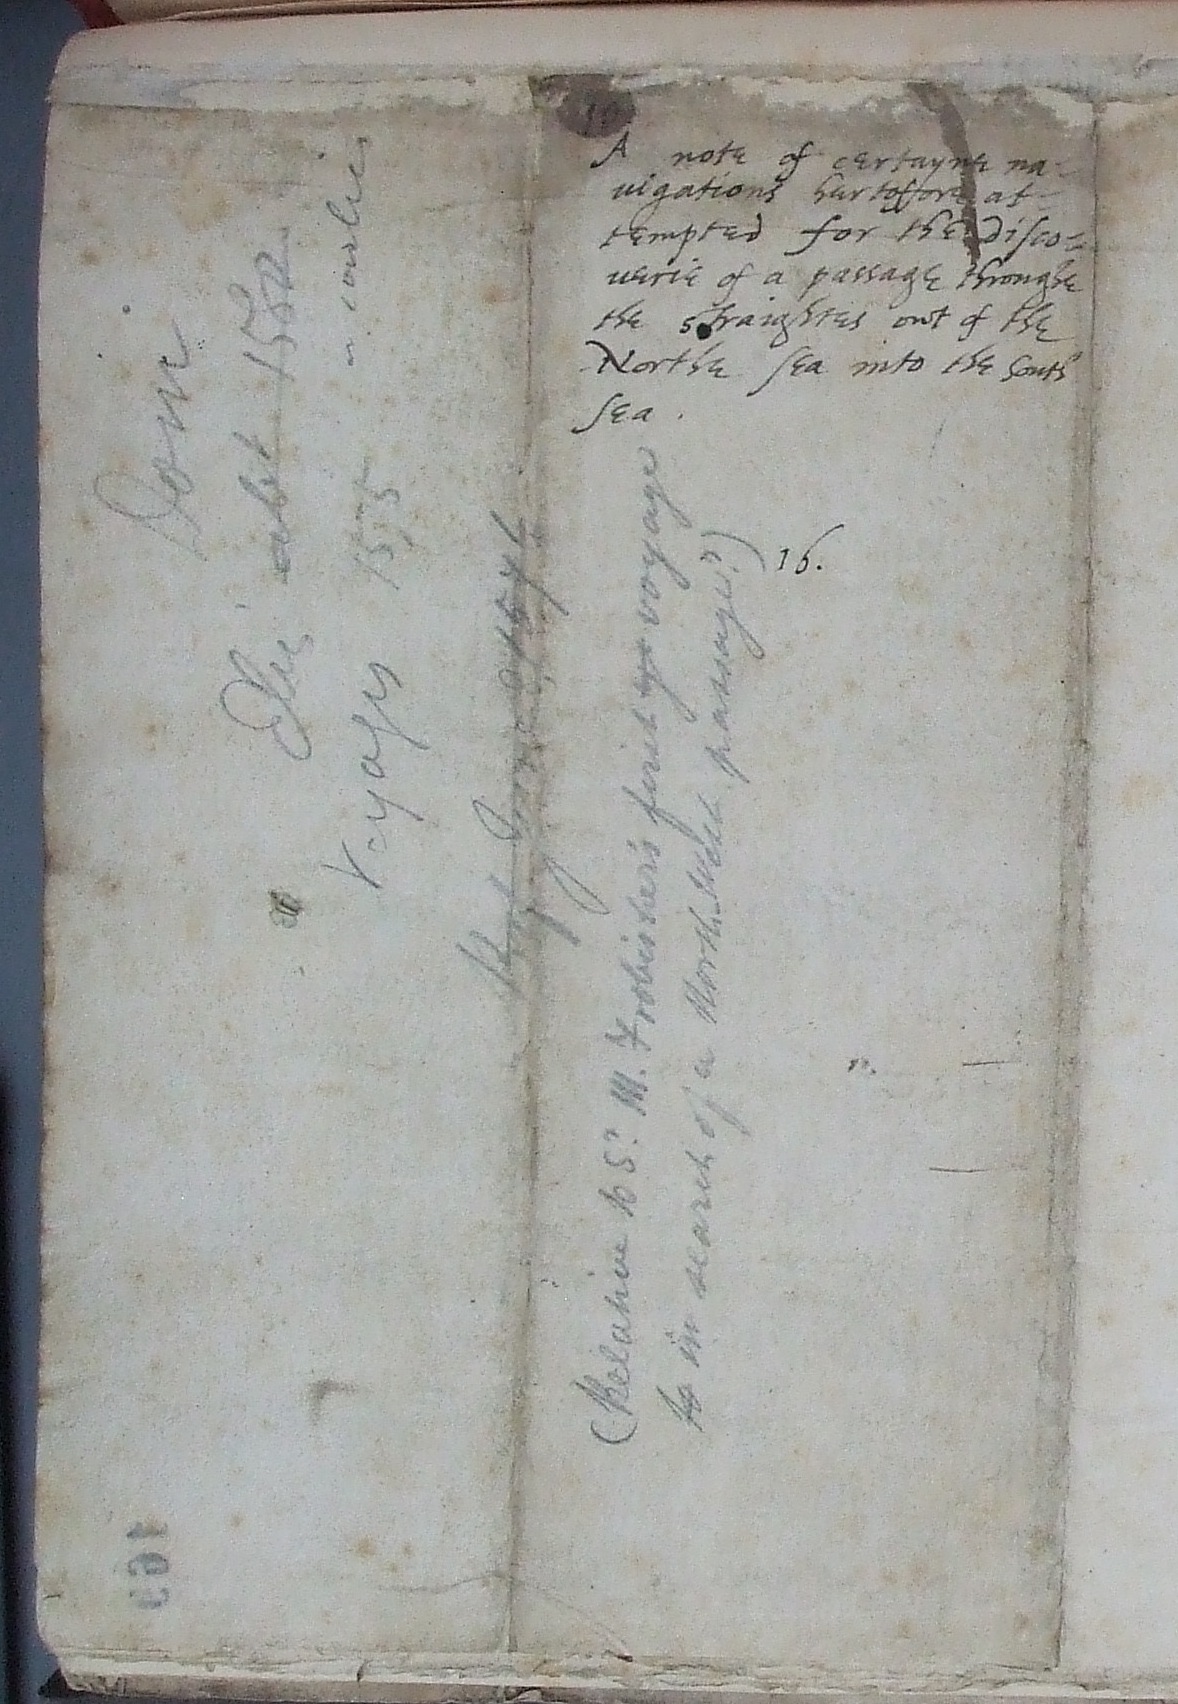 A note of certayne na-
uigations hertoffore at-
tempted for the disco-
uerie of a passage throughe
the straightes out of the
Northe sea into the South
sea.
16.
Dom
Eliz abt 1580
or earlier
Voyages 1575
(Relative to S: M. Frobisher's first voyage
to in search of a North West passage?)